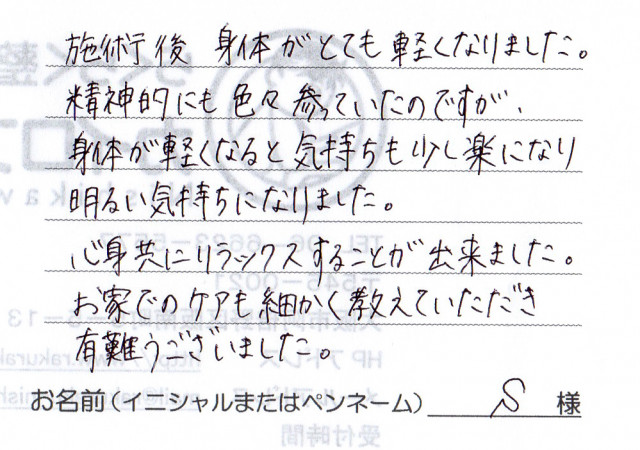 施術後 身体がとても軽くなりました。
精神的にも色々参っていたのですが、
身体が軽くなると気持ちも少し楽になり
明るい気持ちになりました。
心身共にリラックスすることが出来ました。
お家でのケアも細かく教えていただき
有難うございました。
お名前(イニシャルまたはペンネーム) S 様